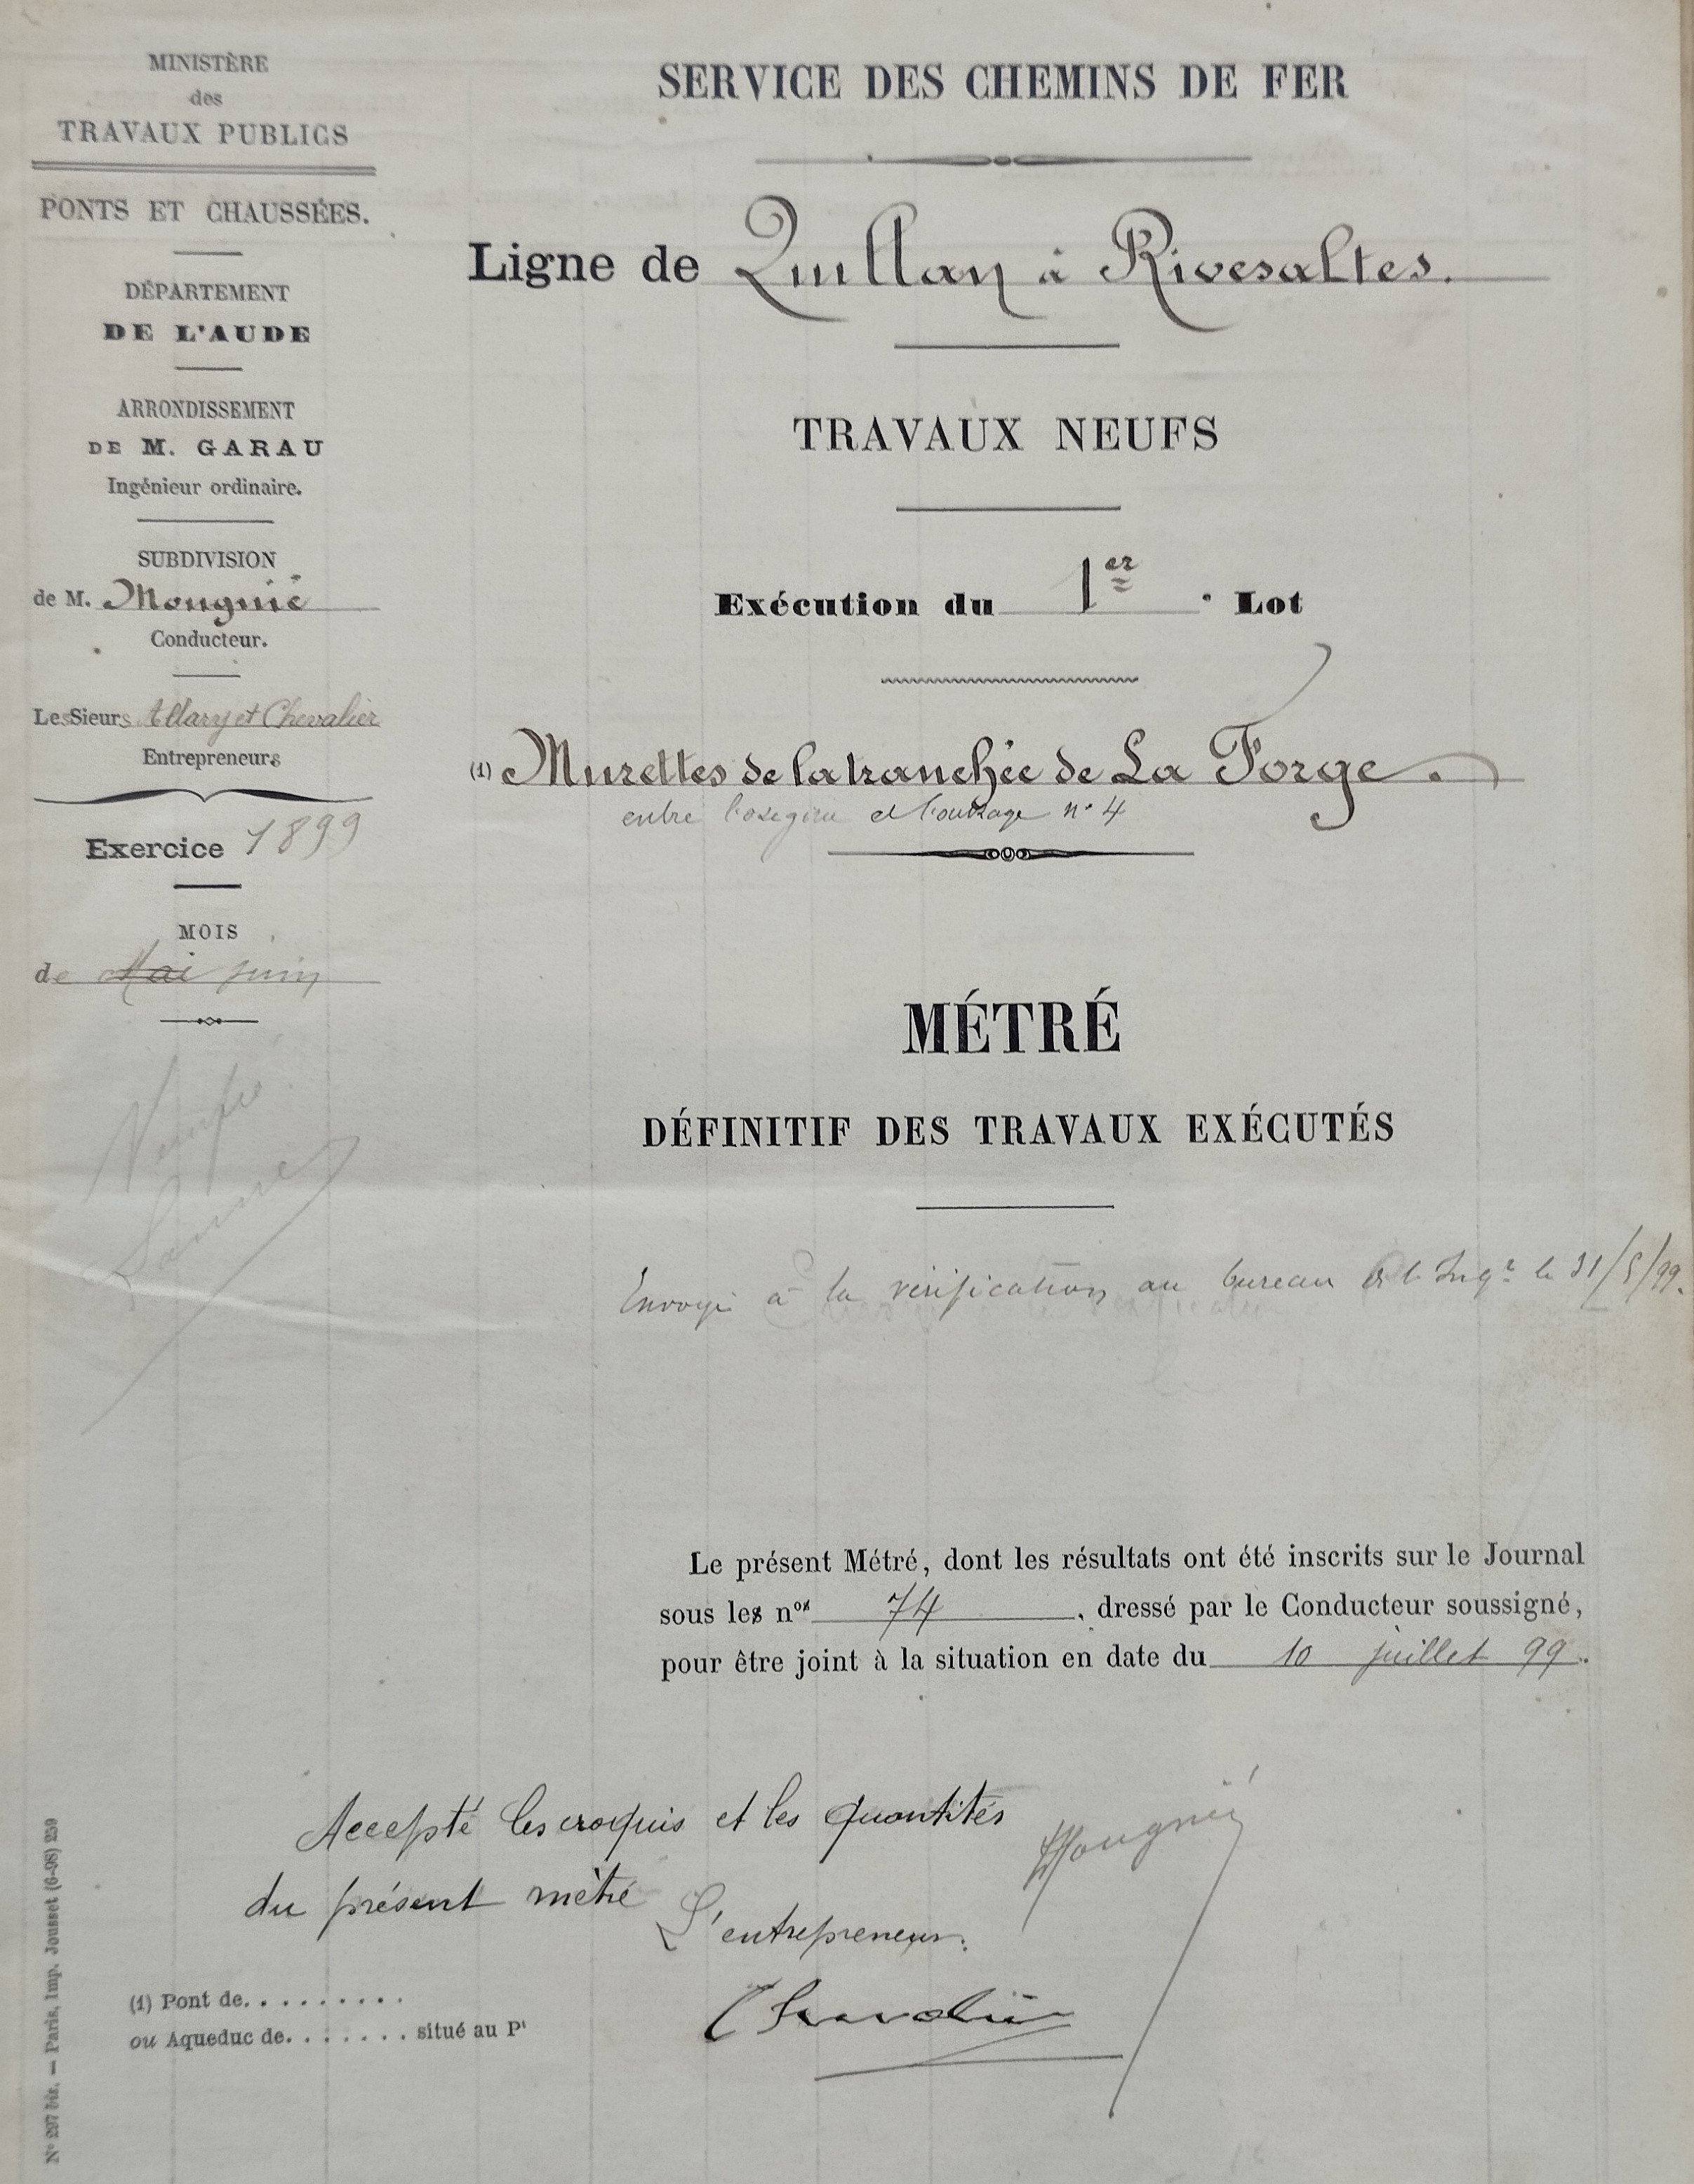 MINISTÈRE
des
TRAVAUX PUBLICS
PONTS ET CHAUSSÉES.
DÉPARTEMENT
DE L'AUDE
ARRONDISSEMENT
DE M. GARAU
Ingénieur ordinaire.
SUBDIVISION
de M. Mougnié
Conducteur.
Les Sieurs Allary et Chevalier
Entrepreneurs
Exercice 1899
MOIS
de Mai juin
Vérifié
SERVICE DES CHEMINS DE FER
Ligne de Quillan à Rivesaltes.
TRAVAUX NEUFS
Exécution du 1er Lot
(1) Murettes de la tranchée de La Forge.
entre et l'ouvrage n° 4
MÉTRÉ
DÉFINITIF DES TRAVAUX EXÉCUTÉS
Envoyé à la vérification au bureau de l'Ingr le 31/5/99.
Le présent Métré, dont les résultats ont été inscrits sur le Journal
sous les nos 74, dressé par le Conducteur soussigné,
pour être joint à la situation en date du 10 juillet 99.
Accepté les croquis et les quantités
du présent métré
L'entrepreneur.
Chevalier
Mougnié
(1) Pont de. . . . . . . . .
ou Aqueduc de. . . . . . . situé au Pt
N° 297 bis. — Paris, Imp. Jousset (6-98) 259